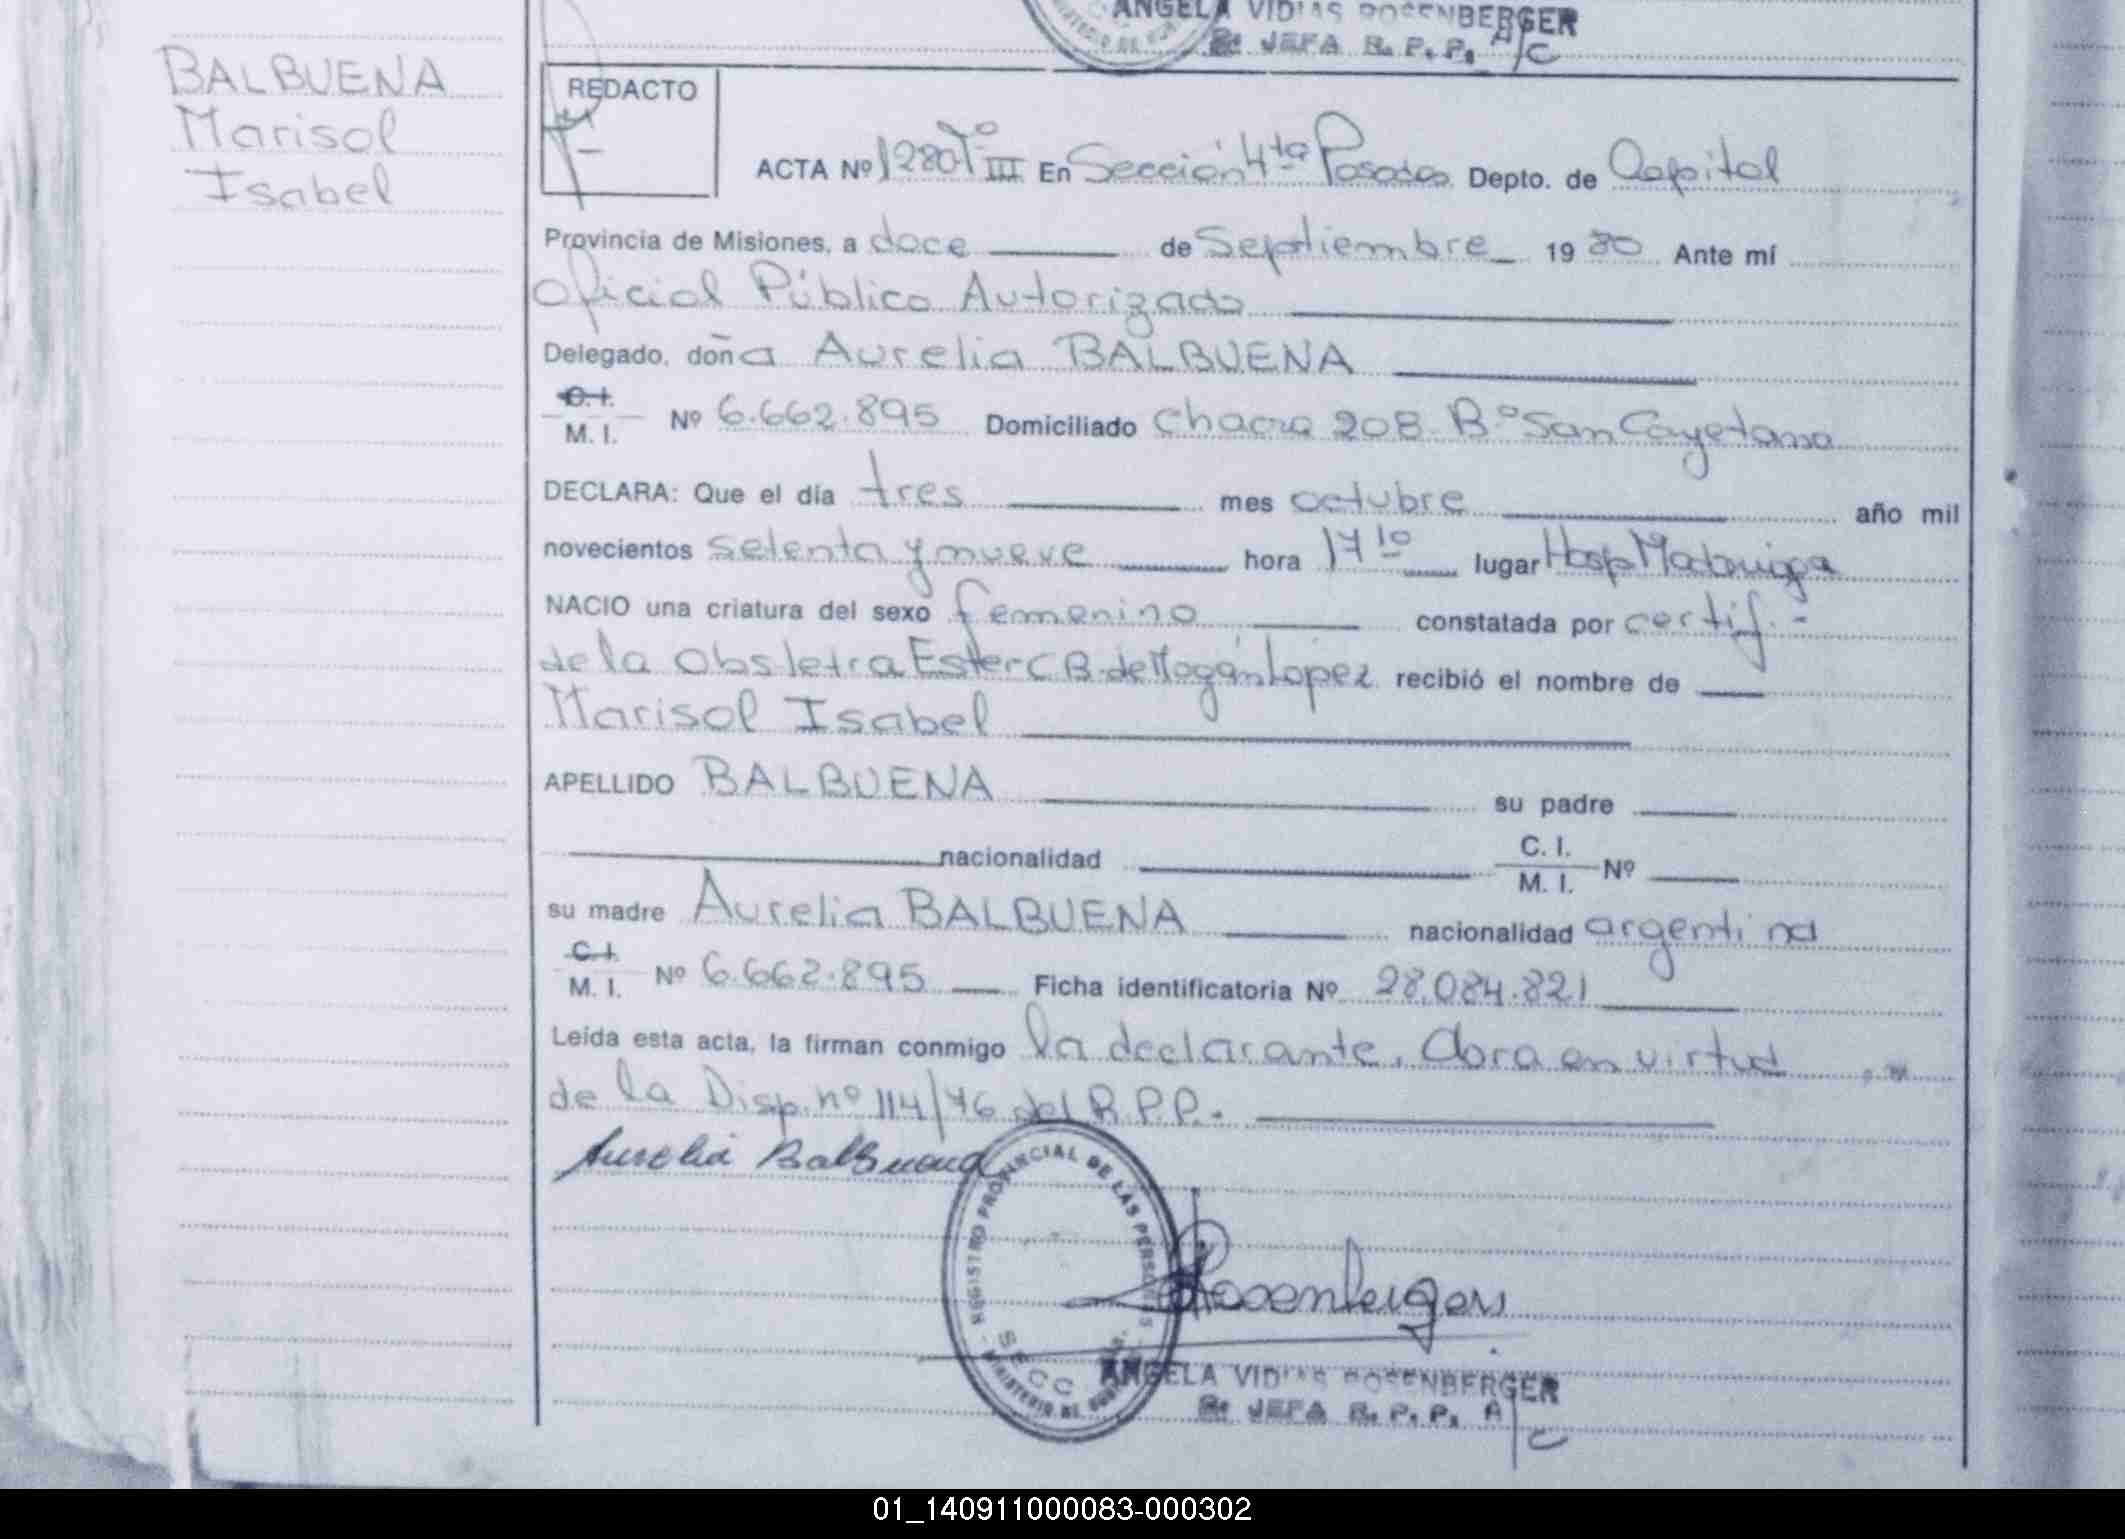 ANGELA VIDIAS ROSENBERGER
JEFA R. P. P. A/C
BALBUENA
Marisol
Isabel
REDACTO
ACTA Nº 1280 Tº III En Sección 4ta Posadas Depto. de Capital
Provincia de Misiones, a doce de Septiembre 1980 Ante mí
Oficial Público Autorizado
Delegado, doña Aurelia BALBUENA
C.I. M. I. Nº 6.662.895 Domiciliado Chacra 208 Bº San Cayetano
DECLARA: Que el día tres mes octubre año mil
novecientos setenta y nueve hora 17 10 lugar Hosp Madariaga
NACIO una criatura del sexo femenino constatada por certif.-
de la Obstetra Ester C B. de Mogán Lopez recibió el nombre de
Marisol Isabel
APELLIDO BALBUENA su padre
nacionalidad C. I. M. I. Nº
su madre Aurelia BALBUENA nacionalidad argentina
C.I. M. I. Nº 6.662.895 Ficha identificatoria Nº 28.084.821
Leída esta acta, la firman conmigo la declarante. Obra en virtud
de la Disp. nº 114/76 del R.P.P.-
Aurelia Balbuena
REGISTRO PROVINCIAL DE LAS PERSONAS
SECC
MINISTERIO DE
Rosenberger
ANGELA VIDIAS ROSENBERGER
JEFA R. P. P. A/C
01_140911000083-000302